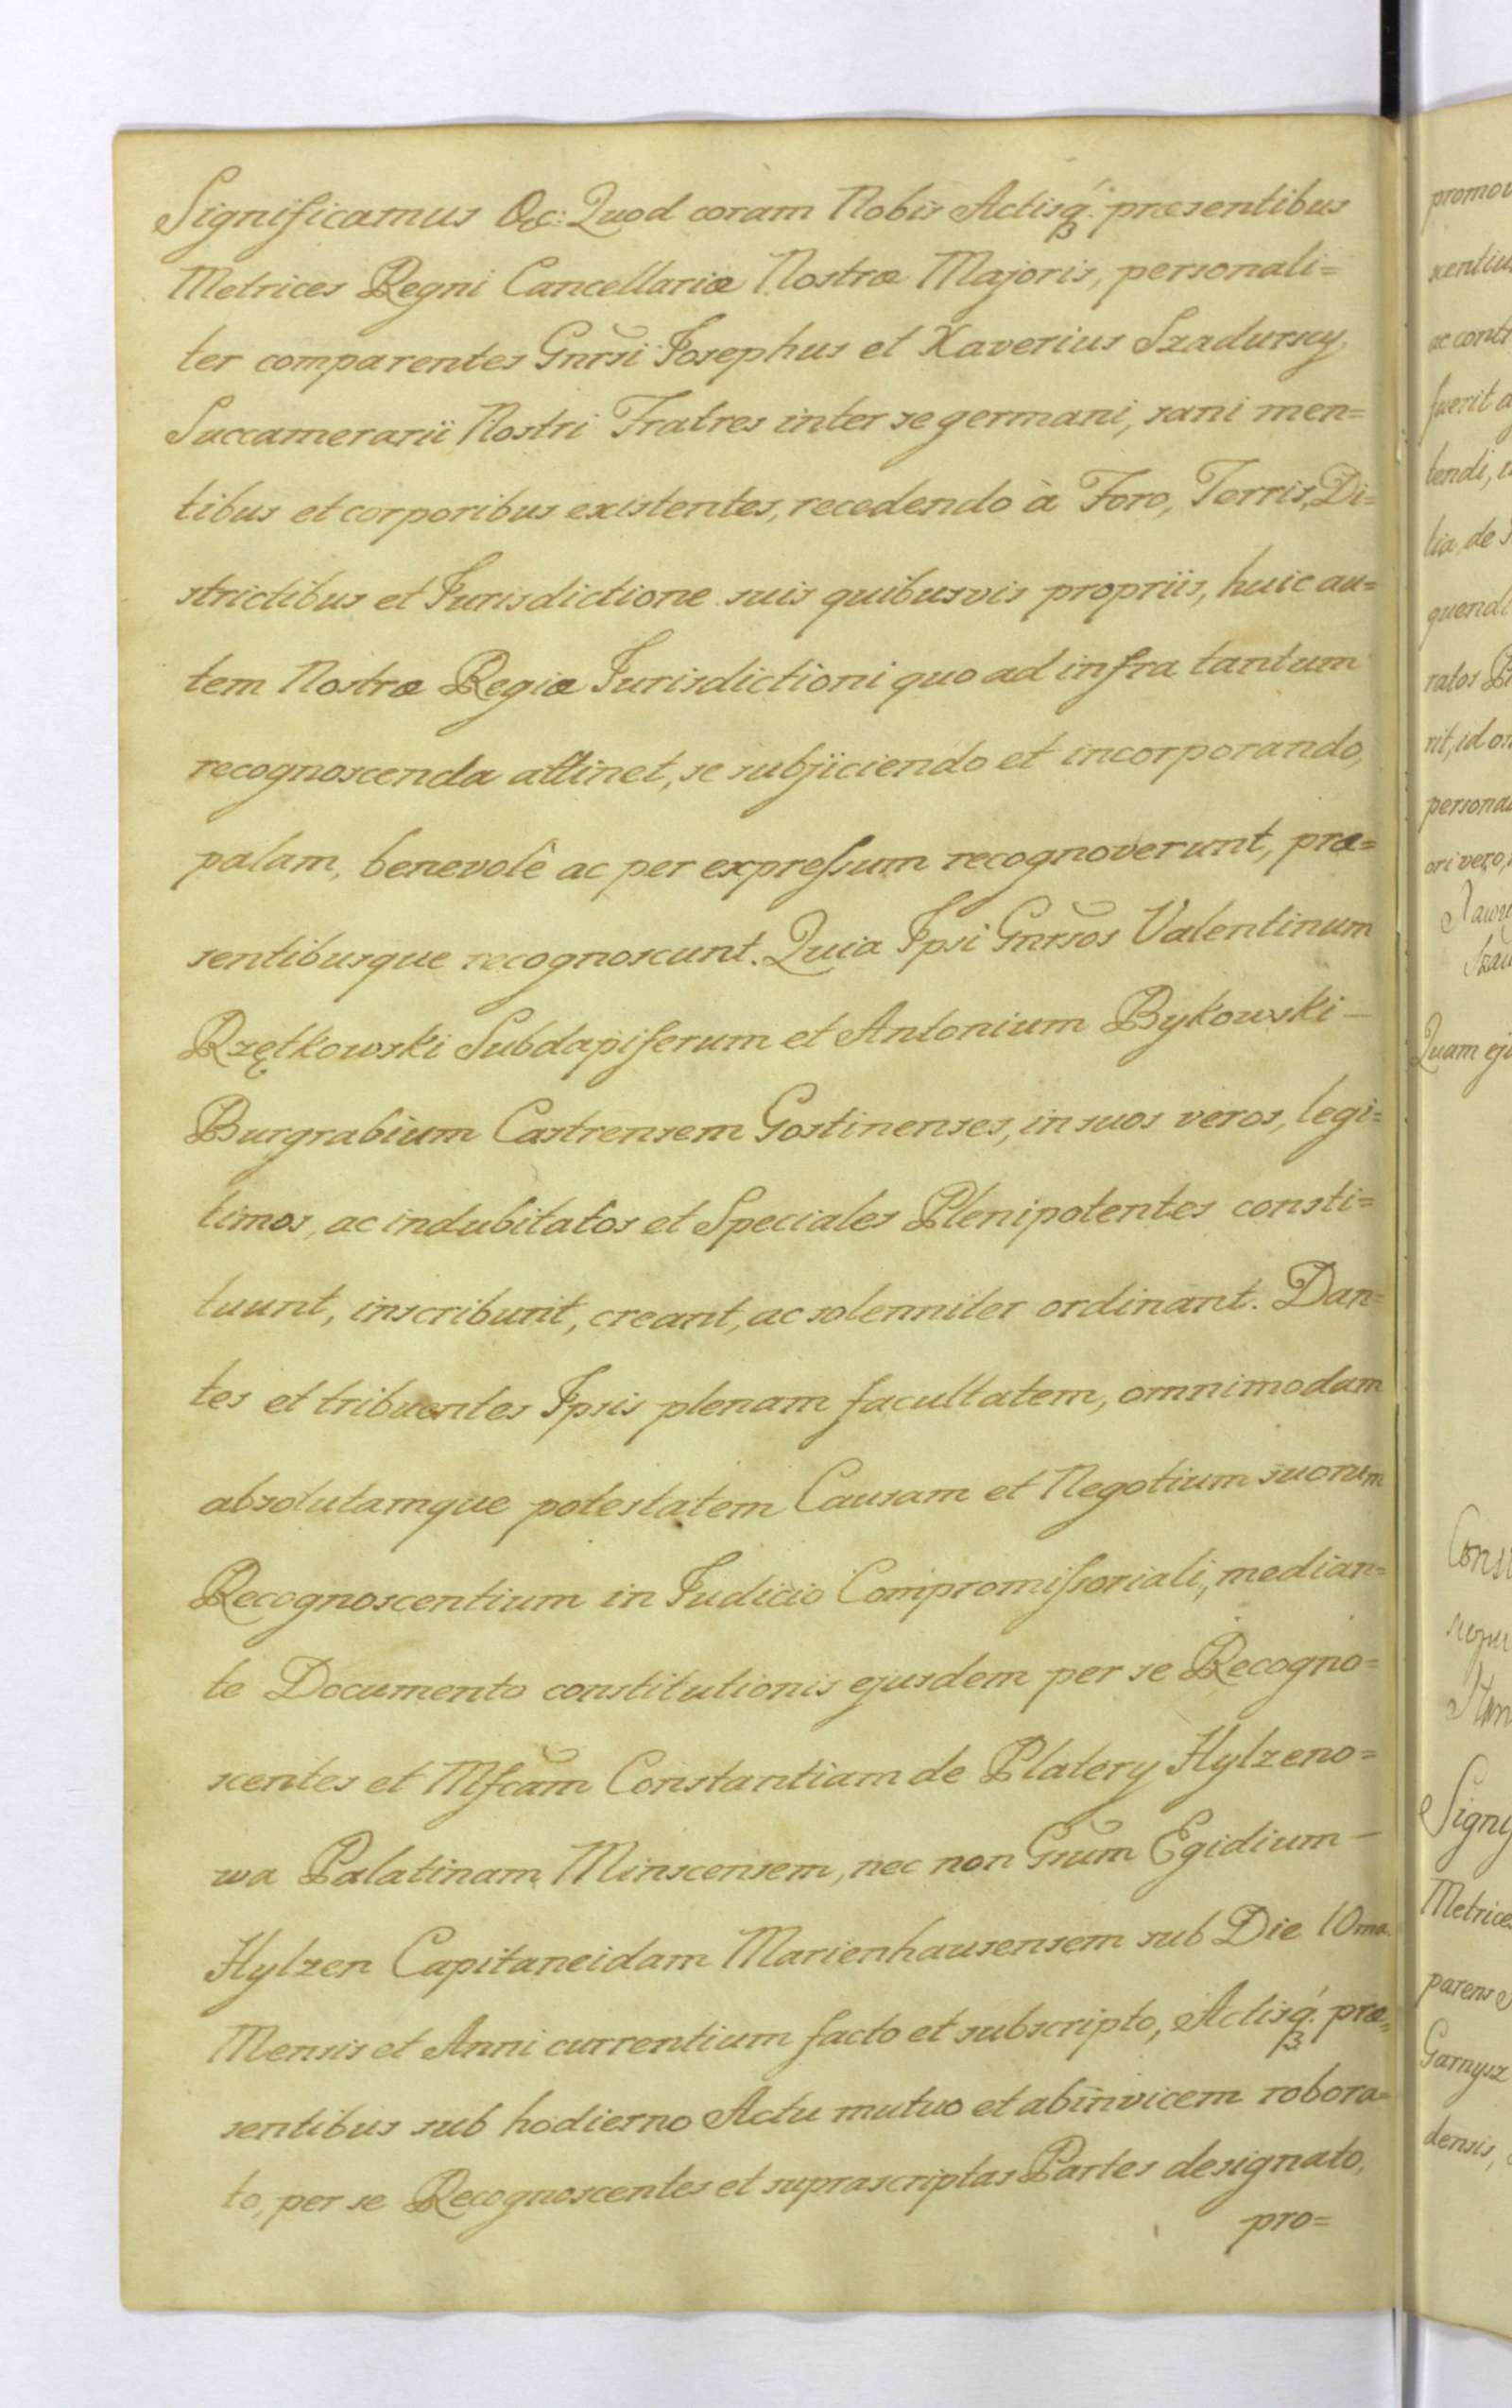 Significamus &c: Quod coram Nobis Actisq́ꝫ præsentibus
Metrices Regni Cancellariæ Nostræ Majoris, personali=
ter comparentes Gnrsi Josephus et Xaverius Szadurscy,
Succamerarii Nostri Fratres inter se germani, sani men=
tibus et corporibus existentes, recedendo à Foro, Terris, Di=
strictibus et Jurisdictione suis quibusvis propriis, huic au=
tem Nostræ Regiæ Jurisdictioni quo ad infra tantum
recognoscenda attinet, se subjiciendo et incorporando,
palam, benevolè ac per expreſsum recognoverunt, præ=
sentibusque recognoscunt. Quia Ipsi Gnrsos Valentinum
Rzętkowski Subdapiferum et Antonium Bykowski —
Burgrabium Castrensem Gostinenses, in suos veros, legi=
timos, ac indubitatos et Speciales Plenipotentes consti=
tuunt, inscribunt, creant, ac solenniter ordinant. Dan=
tes et tribuentes Ipsis plenam facultatem, omnimodam
absolutamque potestatem Causam et Negotium suorum
Recognoscentium in Judicio Compromiſsoriali, median=
te Documento constitutionis ejusdem per se Recogno=
scentes et Mfcam Constantiam de Platery Hylzeno=
wa Palatinam Minscensem, nec non Gsum Egidium —
Hylzen Capitaneidam Marienhausensem sub Die 10ma
Mensis et Anni currentium facto et subscripto, Actisq́ꝫ præ=
sentibus sub hodierno Actu mutuo et abinvicem robora=
to, per se Recognoscentes et suprascriptas Partes designato,
pro=